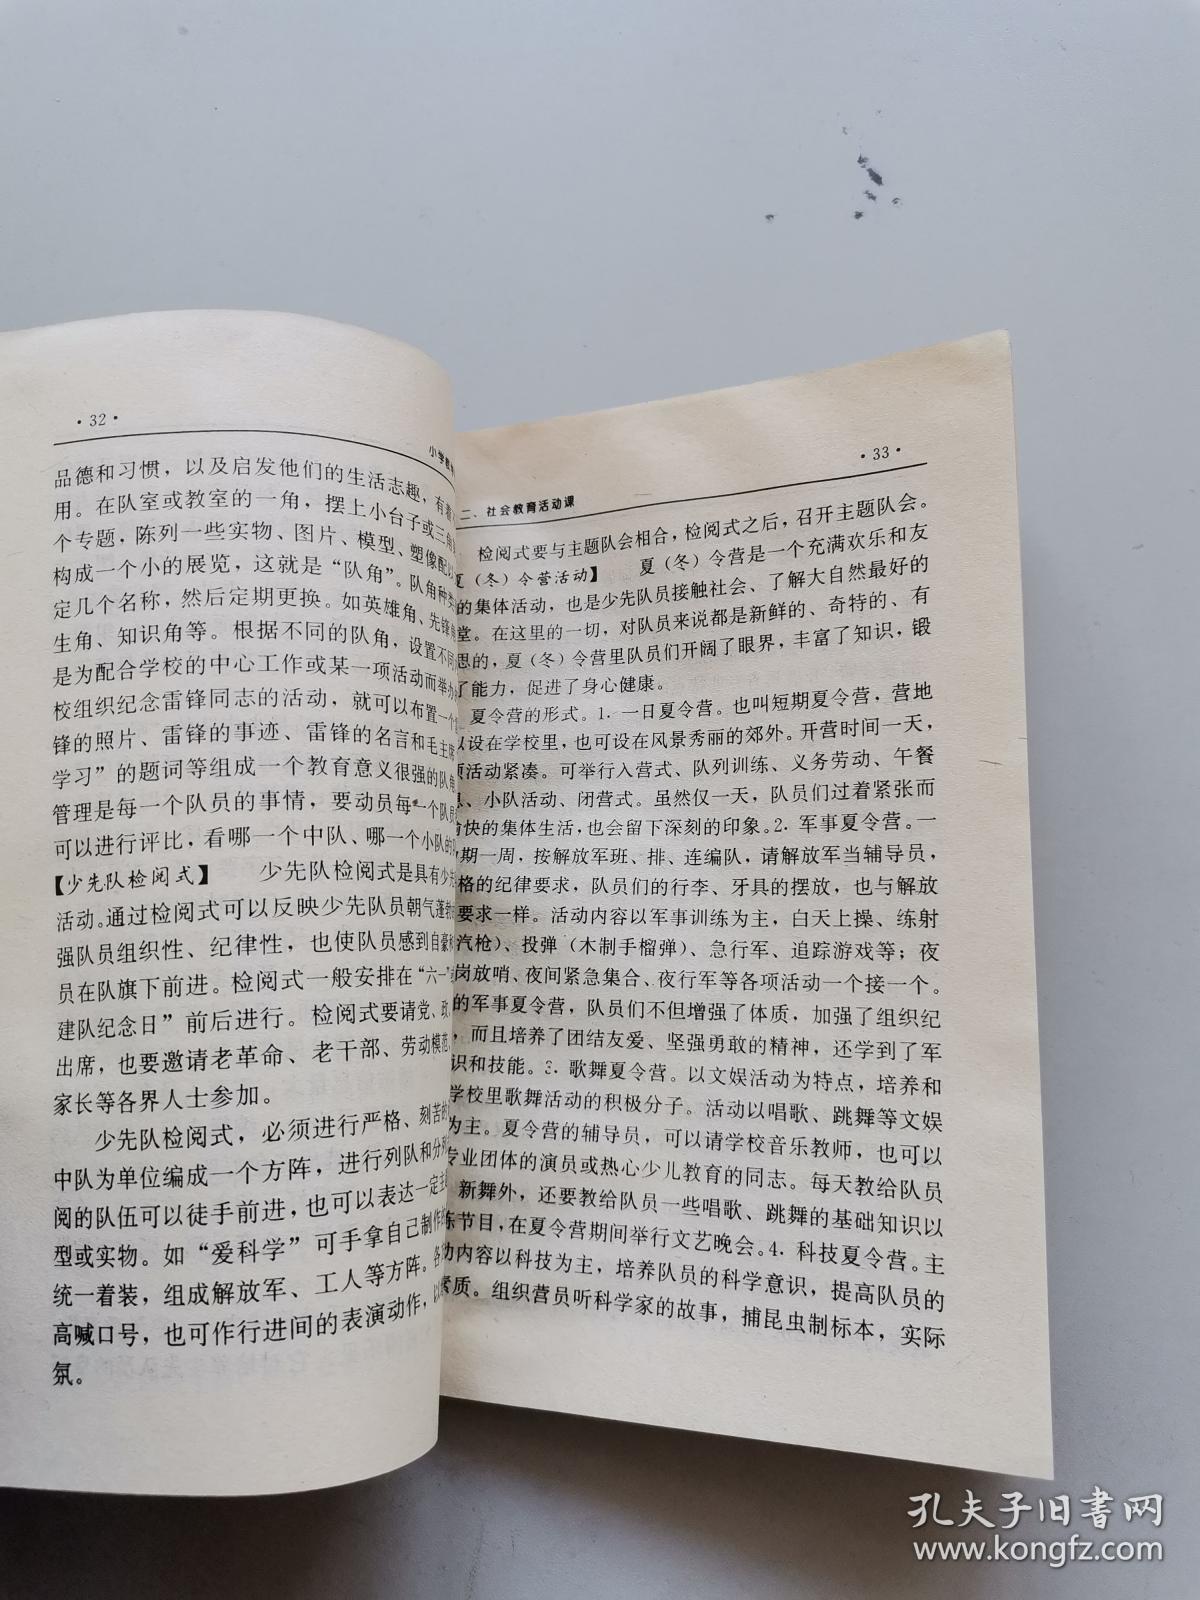 ·32·
小学教
品德和习惯，以及启发他们的生活志趣，有着
用。在队室或教室的一角，摆上小台子或三角
个专题，陈列一些实物、图片、模型、塑像配以
构成一个小的展览，这就是“队角”。队角种类
定几个名称，然后定期更换。如英雄角、先锋角
生角、知识角等。根据不同的队角，设置不同
是为配合学校的中心工作或某一项活动而举办
校组织纪念雷锋同志的活动，就可以布置一个
锋的照片、雷锋的事迹、雷锋的名言和毛主席
学习”的题词等组成一个教育意义很强的队角
管理是每一个队员的事情，要动员每一个队员
可以进行评比，看哪一个中队、哪一个小队的
【少先队检阅式】 少先队检阅式是具有少先
活动。通过检阅式可以反映少先队员朝气蓬勃
强队员组织性、纪律性，也使队员感到自豪和
员在队旗下前进。检阅式一般安排在“六一”
建队纪念日”前后进行。检阅式要请党、政、
出席，也要邀请老革命、老干部、劳动模范、
家长等各界人士参加。
少先队检阅式，必须进行严格、刻苦的
中队为单位编成一个方阵，进行列队和分列
阅的队伍可以徒手前进，也可以表达一定主
型或实物。如“爱科学”可手拿自己制作的
统一着装，组成解放军、工人等方阵。各
高喊口号，也可作行进间的表演动作，以
氛。
·33·
二、社会教育活动课
检阅式要与主题队会相合，检阅式之后，召开主题队会。
夏（冬）令营活动】 夏（冬）令营是一个充满欢乐和友
的集体活动，也是少先队员接触社会、了解大自然最好的
堂。在这里的一切，对队员来说都是新鲜的、奇特的、有
思的，夏（冬）令营里队员们开阔了眼界，丰富了知识，锻
了能力，促进了身心健康。
夏令营的形式。1.一日夏令营。也叫短期夏令营，营地
以设在学校里，也可设在风景秀丽的郊外。开营时间一天，
项活动紧凑。可举行入营式、队列训练、义务劳动、午餐
息、小队活动、闭营式。虽然仅一天，队员们过着紧张而
愉快的集体生活，也会留下深刻的印象。2.军事夏令营。一
期一周，按解放军班、排、连编队，请解放军当辅导员，
格的纪律要求，队员们的行李、牙具的摆放，也与解放
要求一样。活动内容以军事训练为主，白天上操、练射
汽枪）、投弹（木制手榴弹）、急行军、追踪游戏等；夜
岗放哨、夜间紧急集合、夜行军等各项活动一个接一个。
的军事夏令营，队员们不但增强了体质，加强了组织纪
，而且培养了团结友爱、坚强勇敢的精神，还学到了军
识和技能。3.歌舞夏令营。以文娱活动为特点，培养和
学校里歌舞活动的积极分子。活动以唱歌、跳舞等文娱
为主。夏令营的辅导员，可以请学校音乐教师，也可以
专业团体的演员或热心少儿教育的同志。每天教给队员
新舞外，还要教给队员一些唱歌、跳舞的基础知识以
乐节目，在夏令营期间举行文艺晚会。4.科技夏令营。主
内容以科技为主，培养队员的科学意识，提高队员的
素质。组织营员听科学家的故事，捕昆虫制标本，实际
孔夫子旧书网
www.kongfz.com